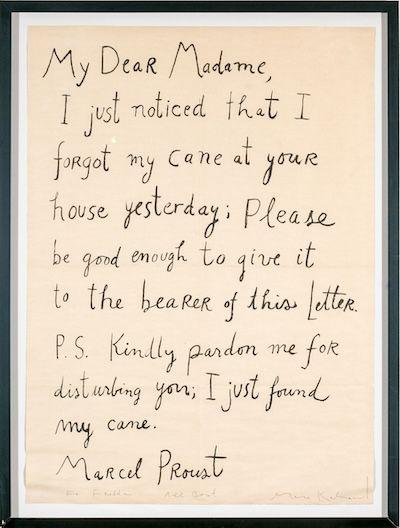 My Dear Madame,
I just noticed that I
forgot my cane at your
house yesterday; Please
be good enough to give it
to the bearer of this letter.
P.S. Kindly pardon me for
disturbing you; I just found
my cane.
Marcel Proust
All Best